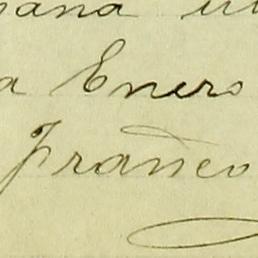 a Enero
Franco